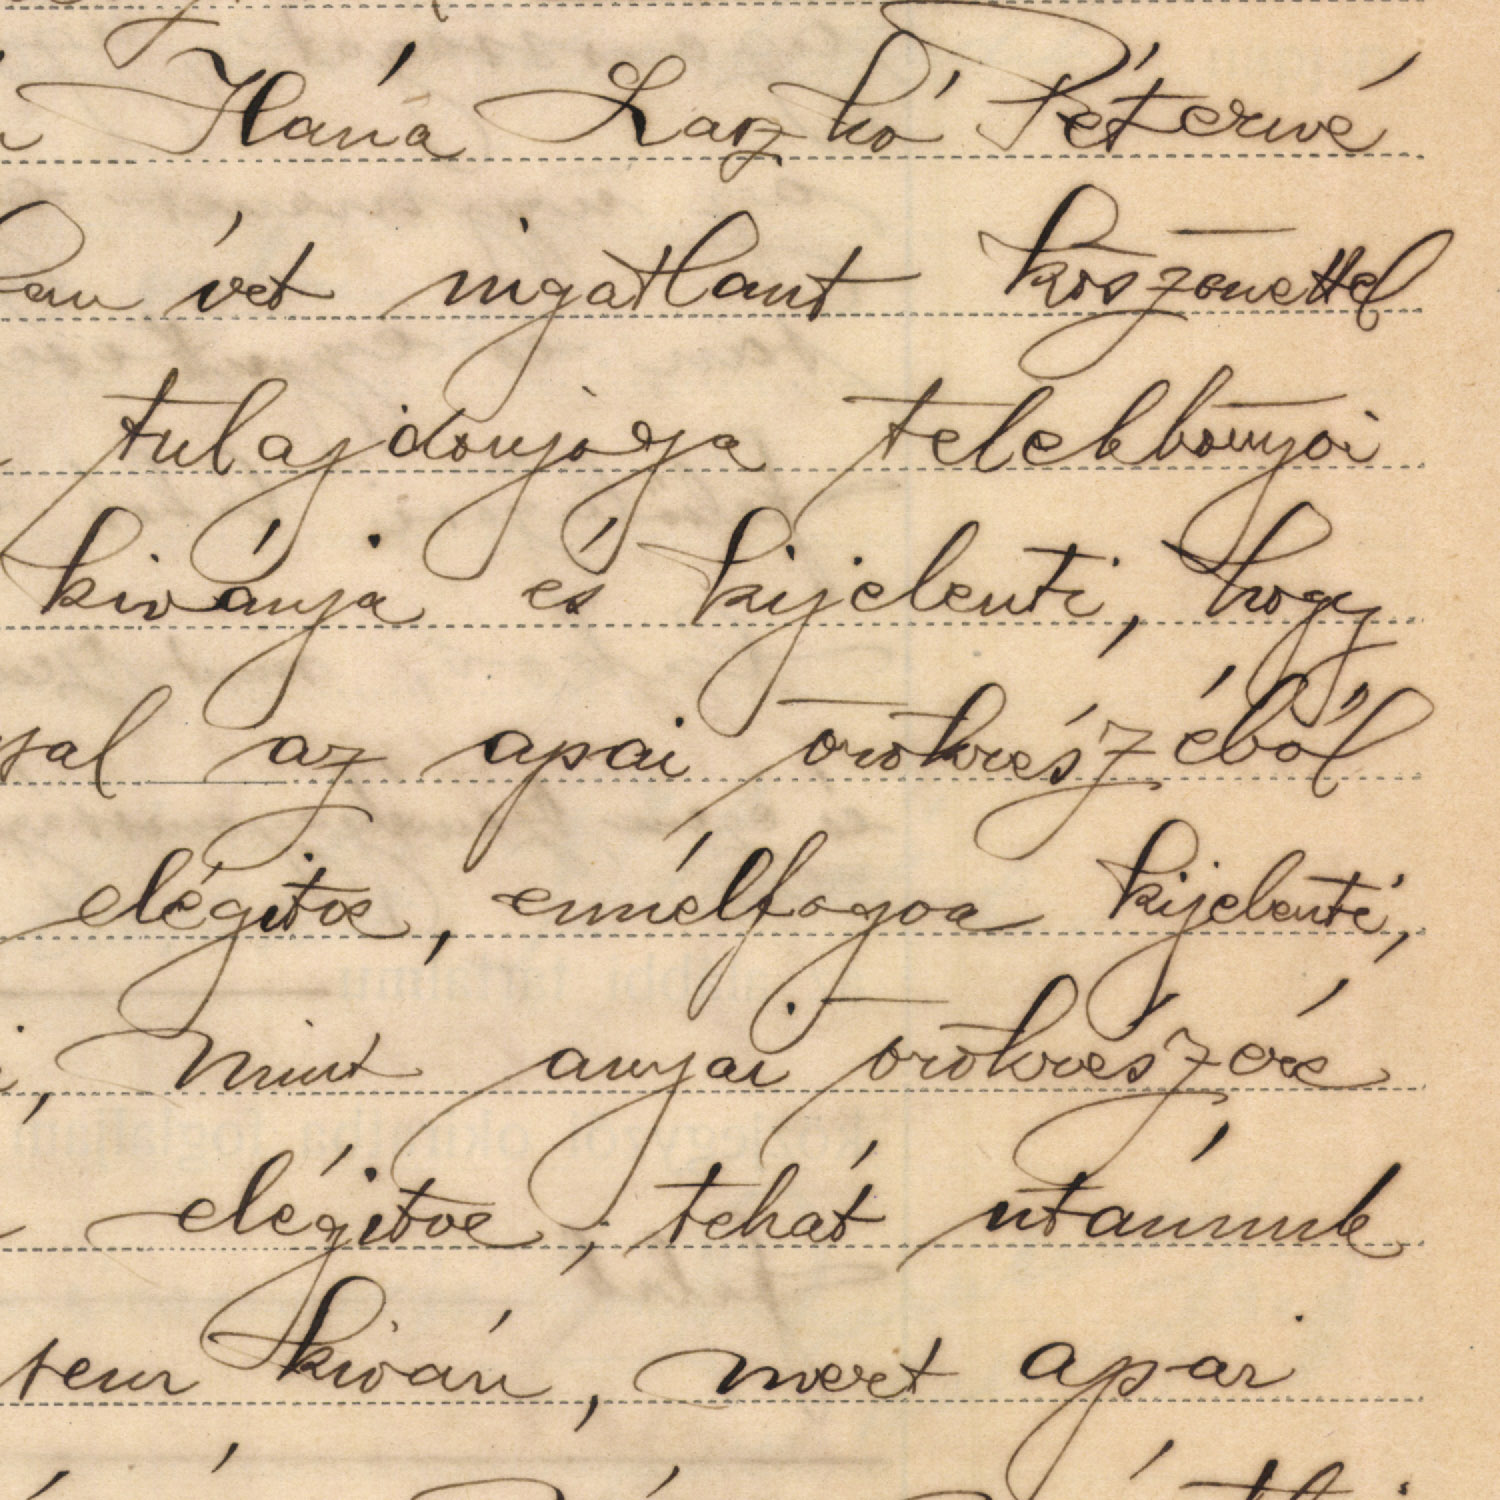 Ilána Laszkó Péterné
vet ingatlant köszönettel
tulajdonjoga telekkönyvi
kivánja és kijelenti, hogy
az apai örökrészéből
elégitve, ennélfogva kijelenti,
mint anyai örökrészére
elégitve, tehát utánnuk
sem kiván, mert apai